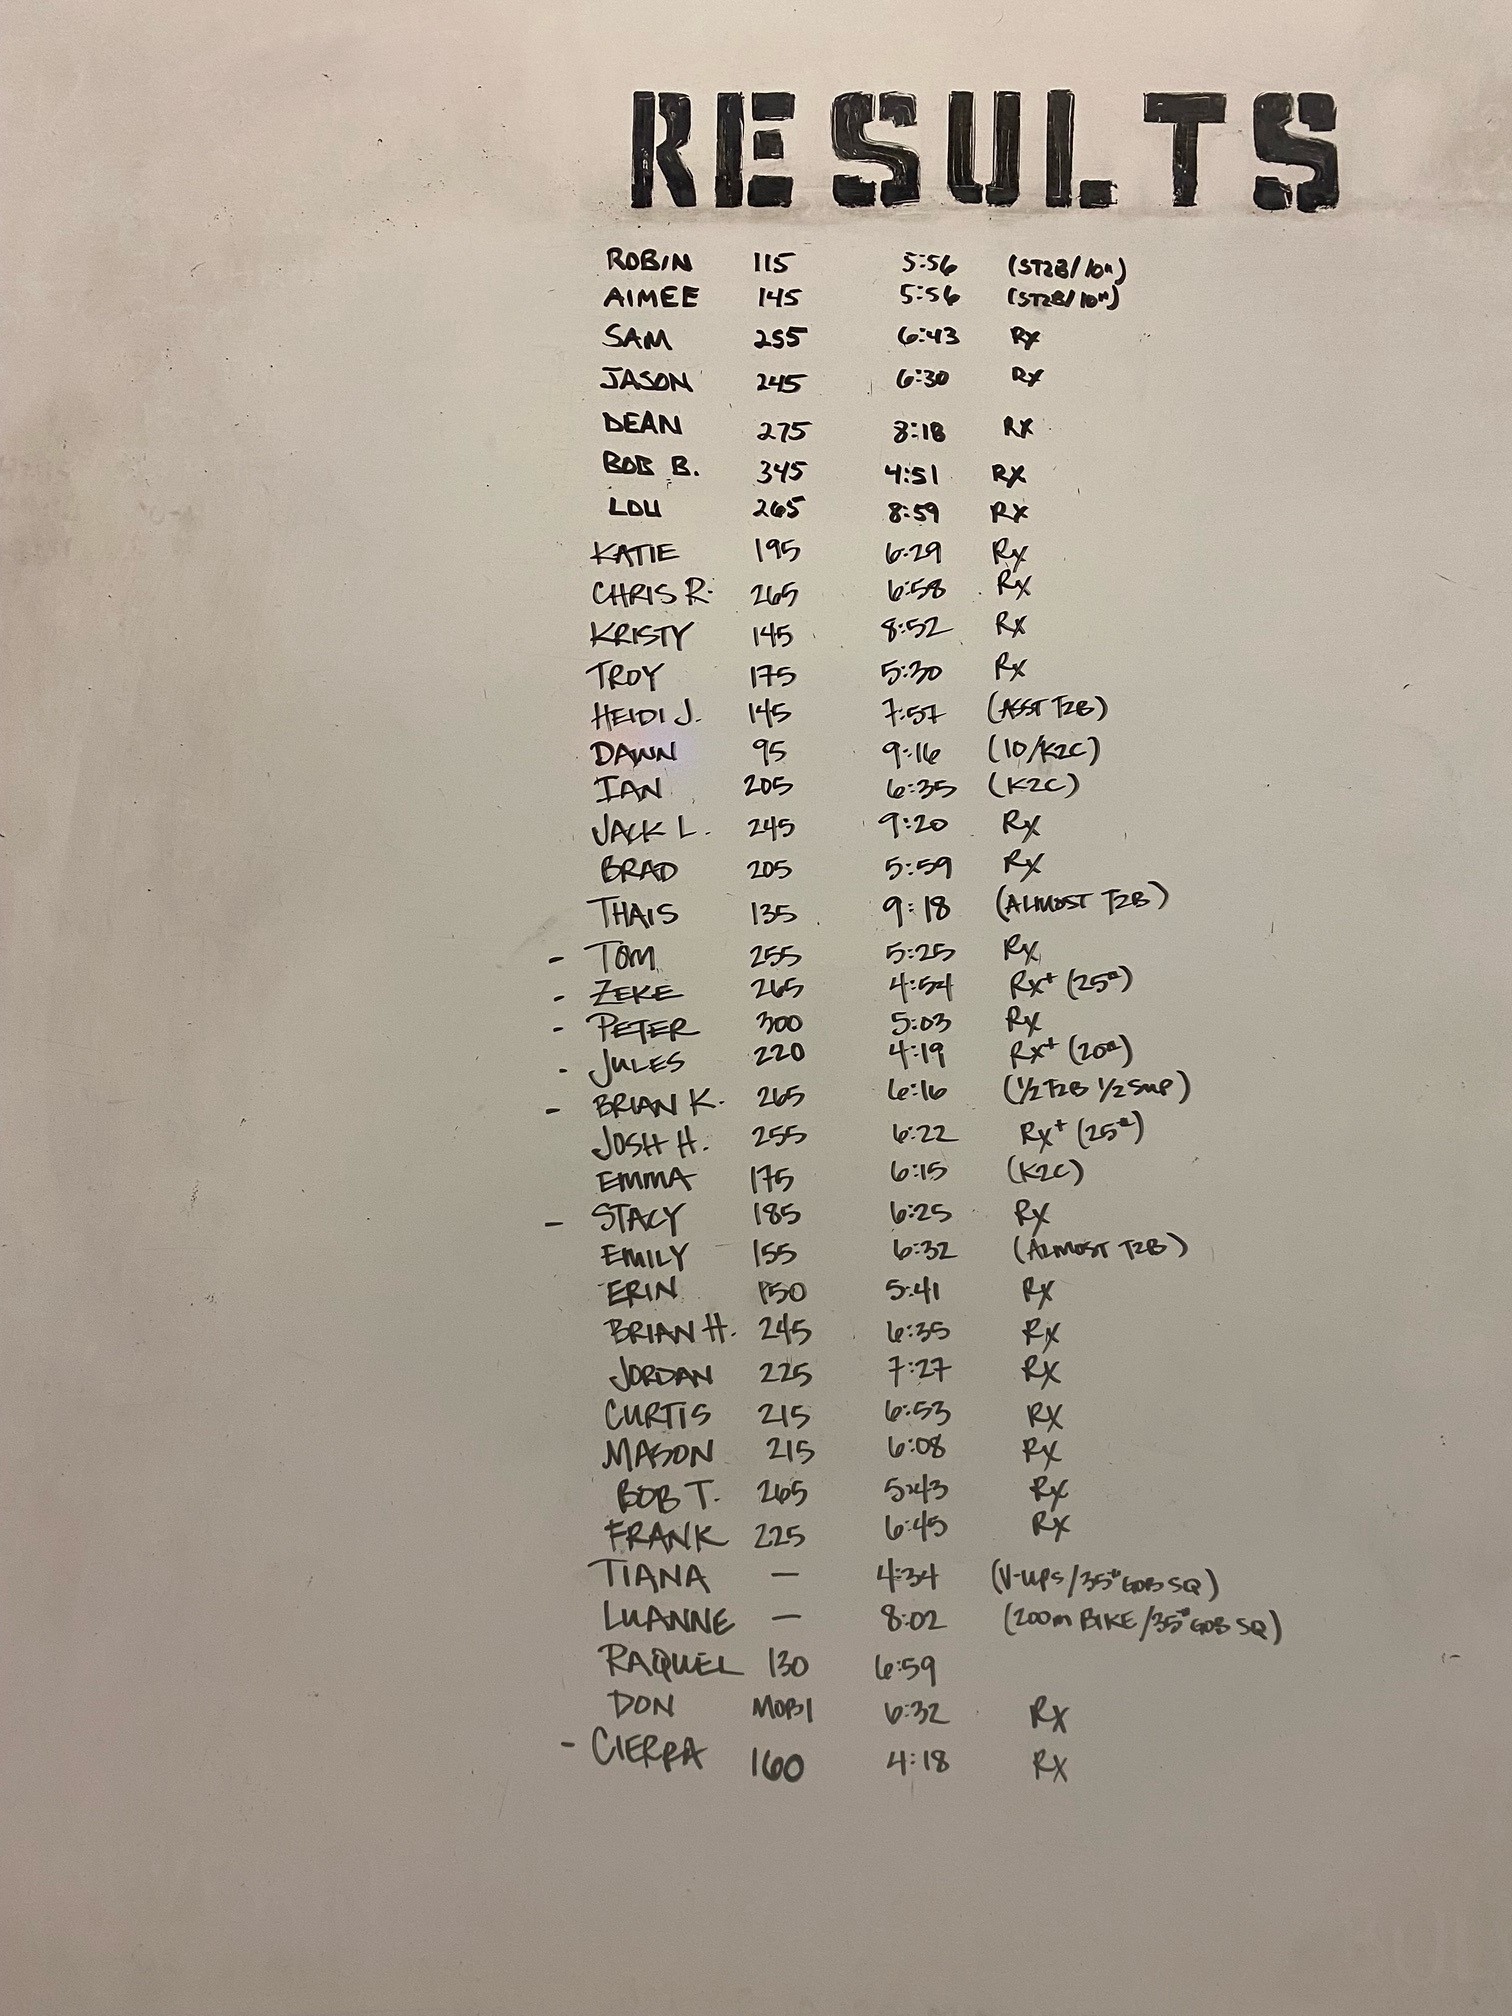 RESULTS
ROBIN 115 5:56 (ST2B/10")
AIMEE 145 5:56 (ST2B/10")
SAM 255 6:43 Rx
JASON 245 6:30 Rx
DEAN 275 8:18 Rx
BOB B. 345 4:51 Rx
LOU 265 8:59 Rx
KATIE 195 6:29 Rx
CHRIS R. 265 6:58 Rx
KRISTY 145 8:52 Rx
TROY 175 5:30 Rx
HEIDI J. 145 7:57 (ASST T2B)
DAWN 95 9:16 (10/K2C)
IAN 205 6:35 (K2C)
JACK L. 245 9:20 Rx
BRAD 205 5:59 Rx
THAIS 135 9:18 (ALMOST T2B)
- TOM 255 5:25 Rx
- ZEKE 265 4:54 Rx+ (25#)
- PETER 300 5:03 Rx
- JULES 220 4:19 Rx+ (20#)
- BRIAN K. 265 6:16 (1/2 T2B 1/2 SUP)
JOSH H. 255 6:22 Rx+ (25#)
EMMA 175 6:15 (K2C)
- STACY 185 6:25 Rx
EMILY 155 6:32 (ALMOST T2B)
ERIN 150 5:41 Rx
BRIAN H. 245 6:35 Rx
JORDAN 225 7:27 Rx
CURTIS 215 6:53 Rx
MASON 215 6:08 Rx
BOB T. 265 5:43 Rx
FRANK 225 6:45 Rx
TIANA — 4:34 (V-UPS/35# GOB SQ)
LUANNE — 8:02 (200m BIKE/35# GOB SQ)
RAQUEL 130 6:59
DON MOBI 6:32 Rx
- CIERRA 160 4:18 Rx